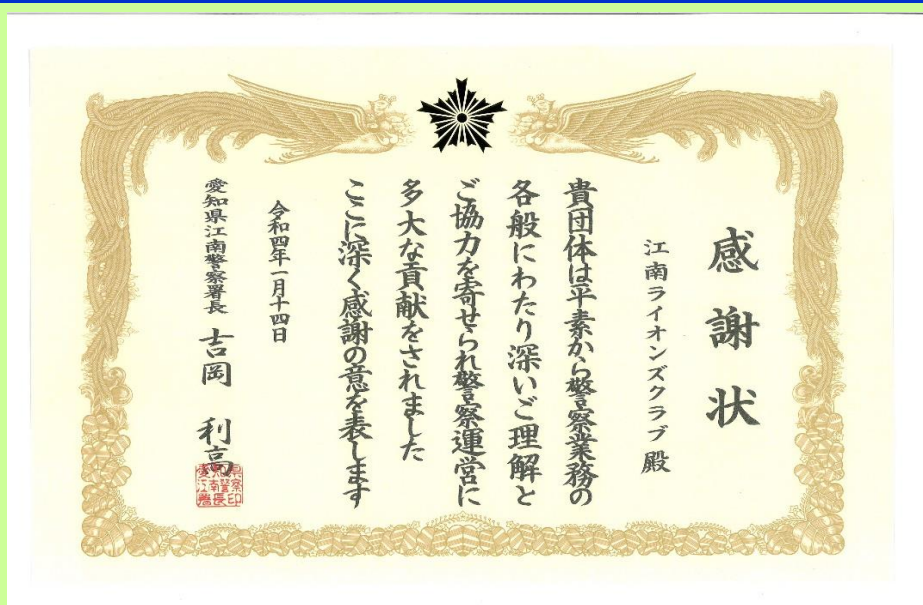 感謝状
江南ライオンズクラブ殿
貴団体は平素から警察業務の
各般にわたり深いご理解と
ご協力を寄せられ警察運営に
多大な貢献をされました
ここに深く感謝の意を表します
令和四年一月十四日
愛知県江南警察署長 吉岡 利高